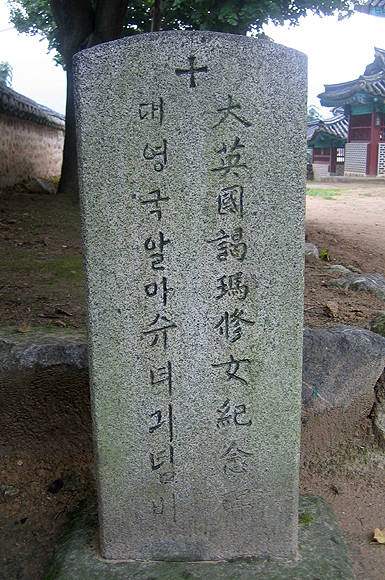 大英國謁瑪修女紀念碑
대영국알마슈녀긔념비